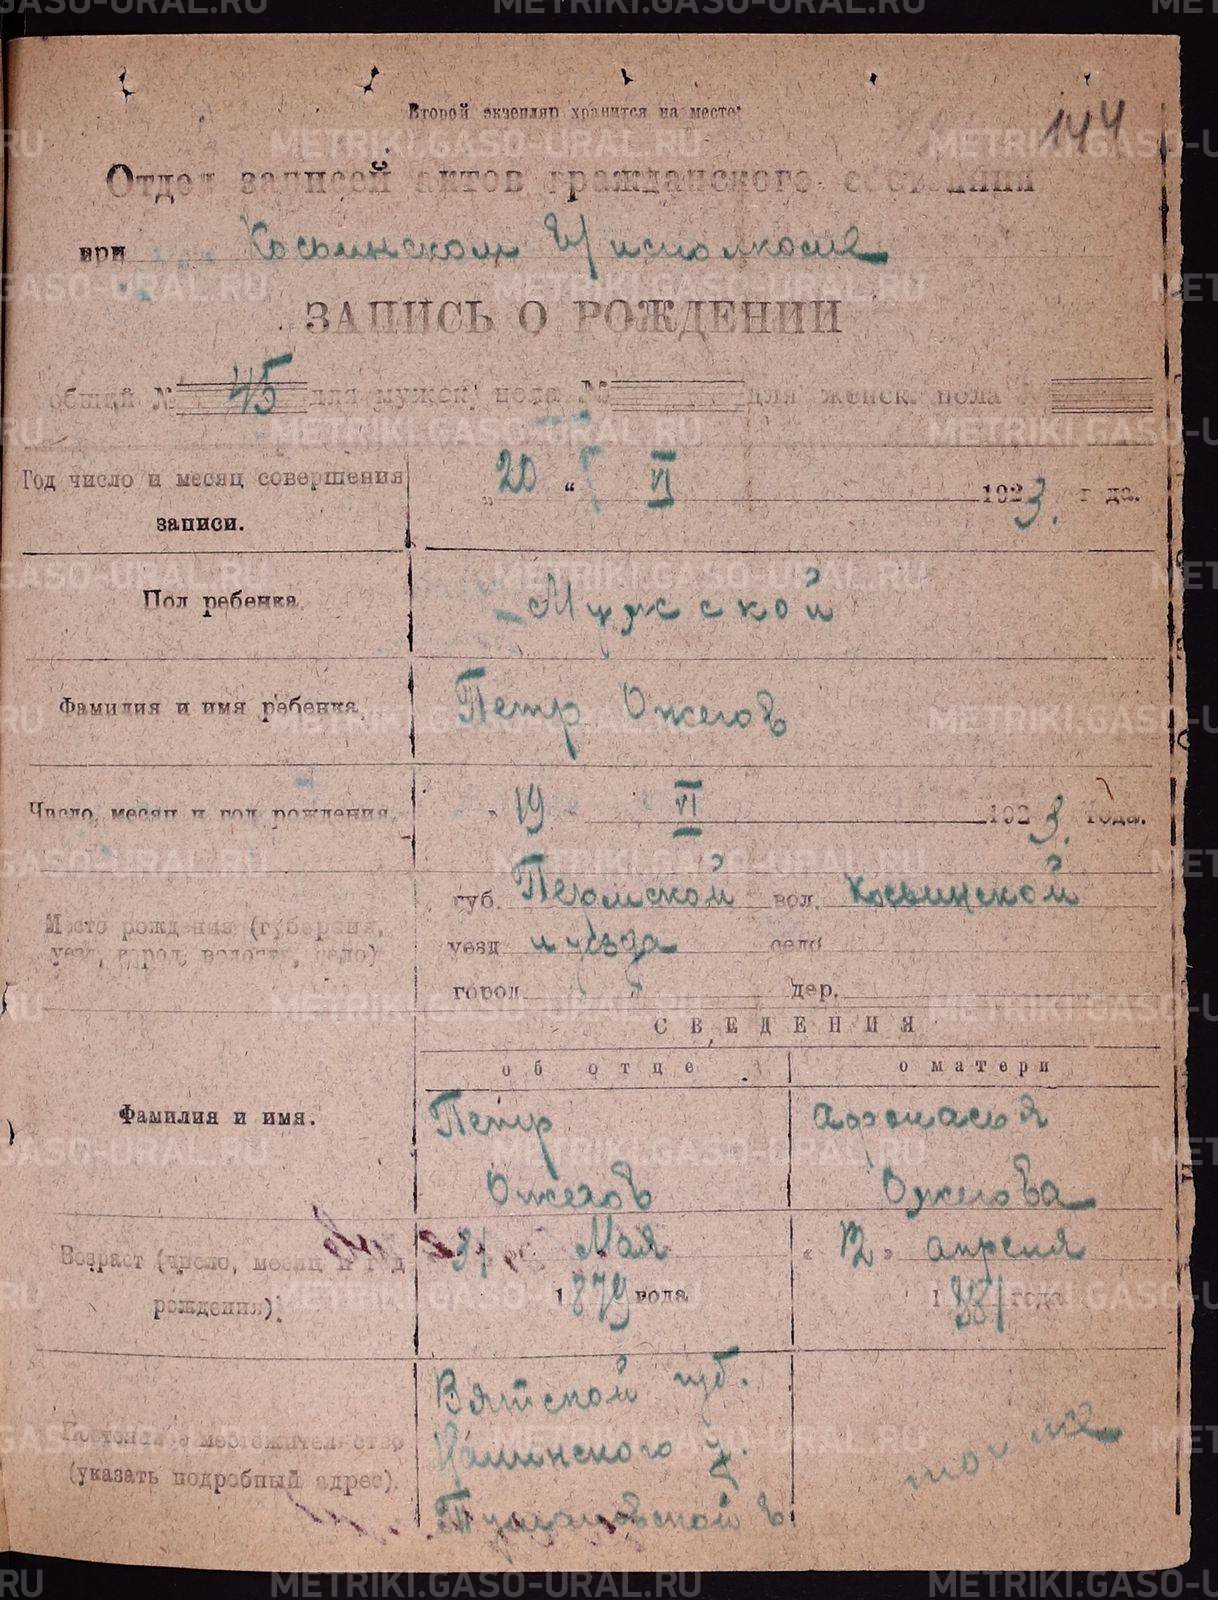 144
Второй экземпляр хранится на месте:
Отдел записей актов гражданского состояния
при Косьинском В/исполкоме
ЗАПИСЬ О РОЖДЕНИИ
общий № 45 для мужск. пола № для женск. пола №
Год число и месяц совершения записи.
„ 20 “ VI 1923. года.
Пол ребенка
Мужской
Фамилия и имя ребенка
Петр Ожегов
Число, месяц и год рождения.
19 VI 1923. года.
Место рождения (губерния, уезд, город, волость, село)
губ. Пермской вол. Косьинской
уезд и уезда село
город дер.
СВЕДЕНИЯ
об отце о матери
Фамилия и имя.
Петр Ожегов
Афонасья Ожегова
Возраст (число, месяц и год рождения)
31 Мая 1879 года
„ 12 „ апреля 1881 года
Постоянное местожительство (указать подробный адрес).
Вятской губ.
у.
в.
то же
METRIKI.GASO-URAL.RU